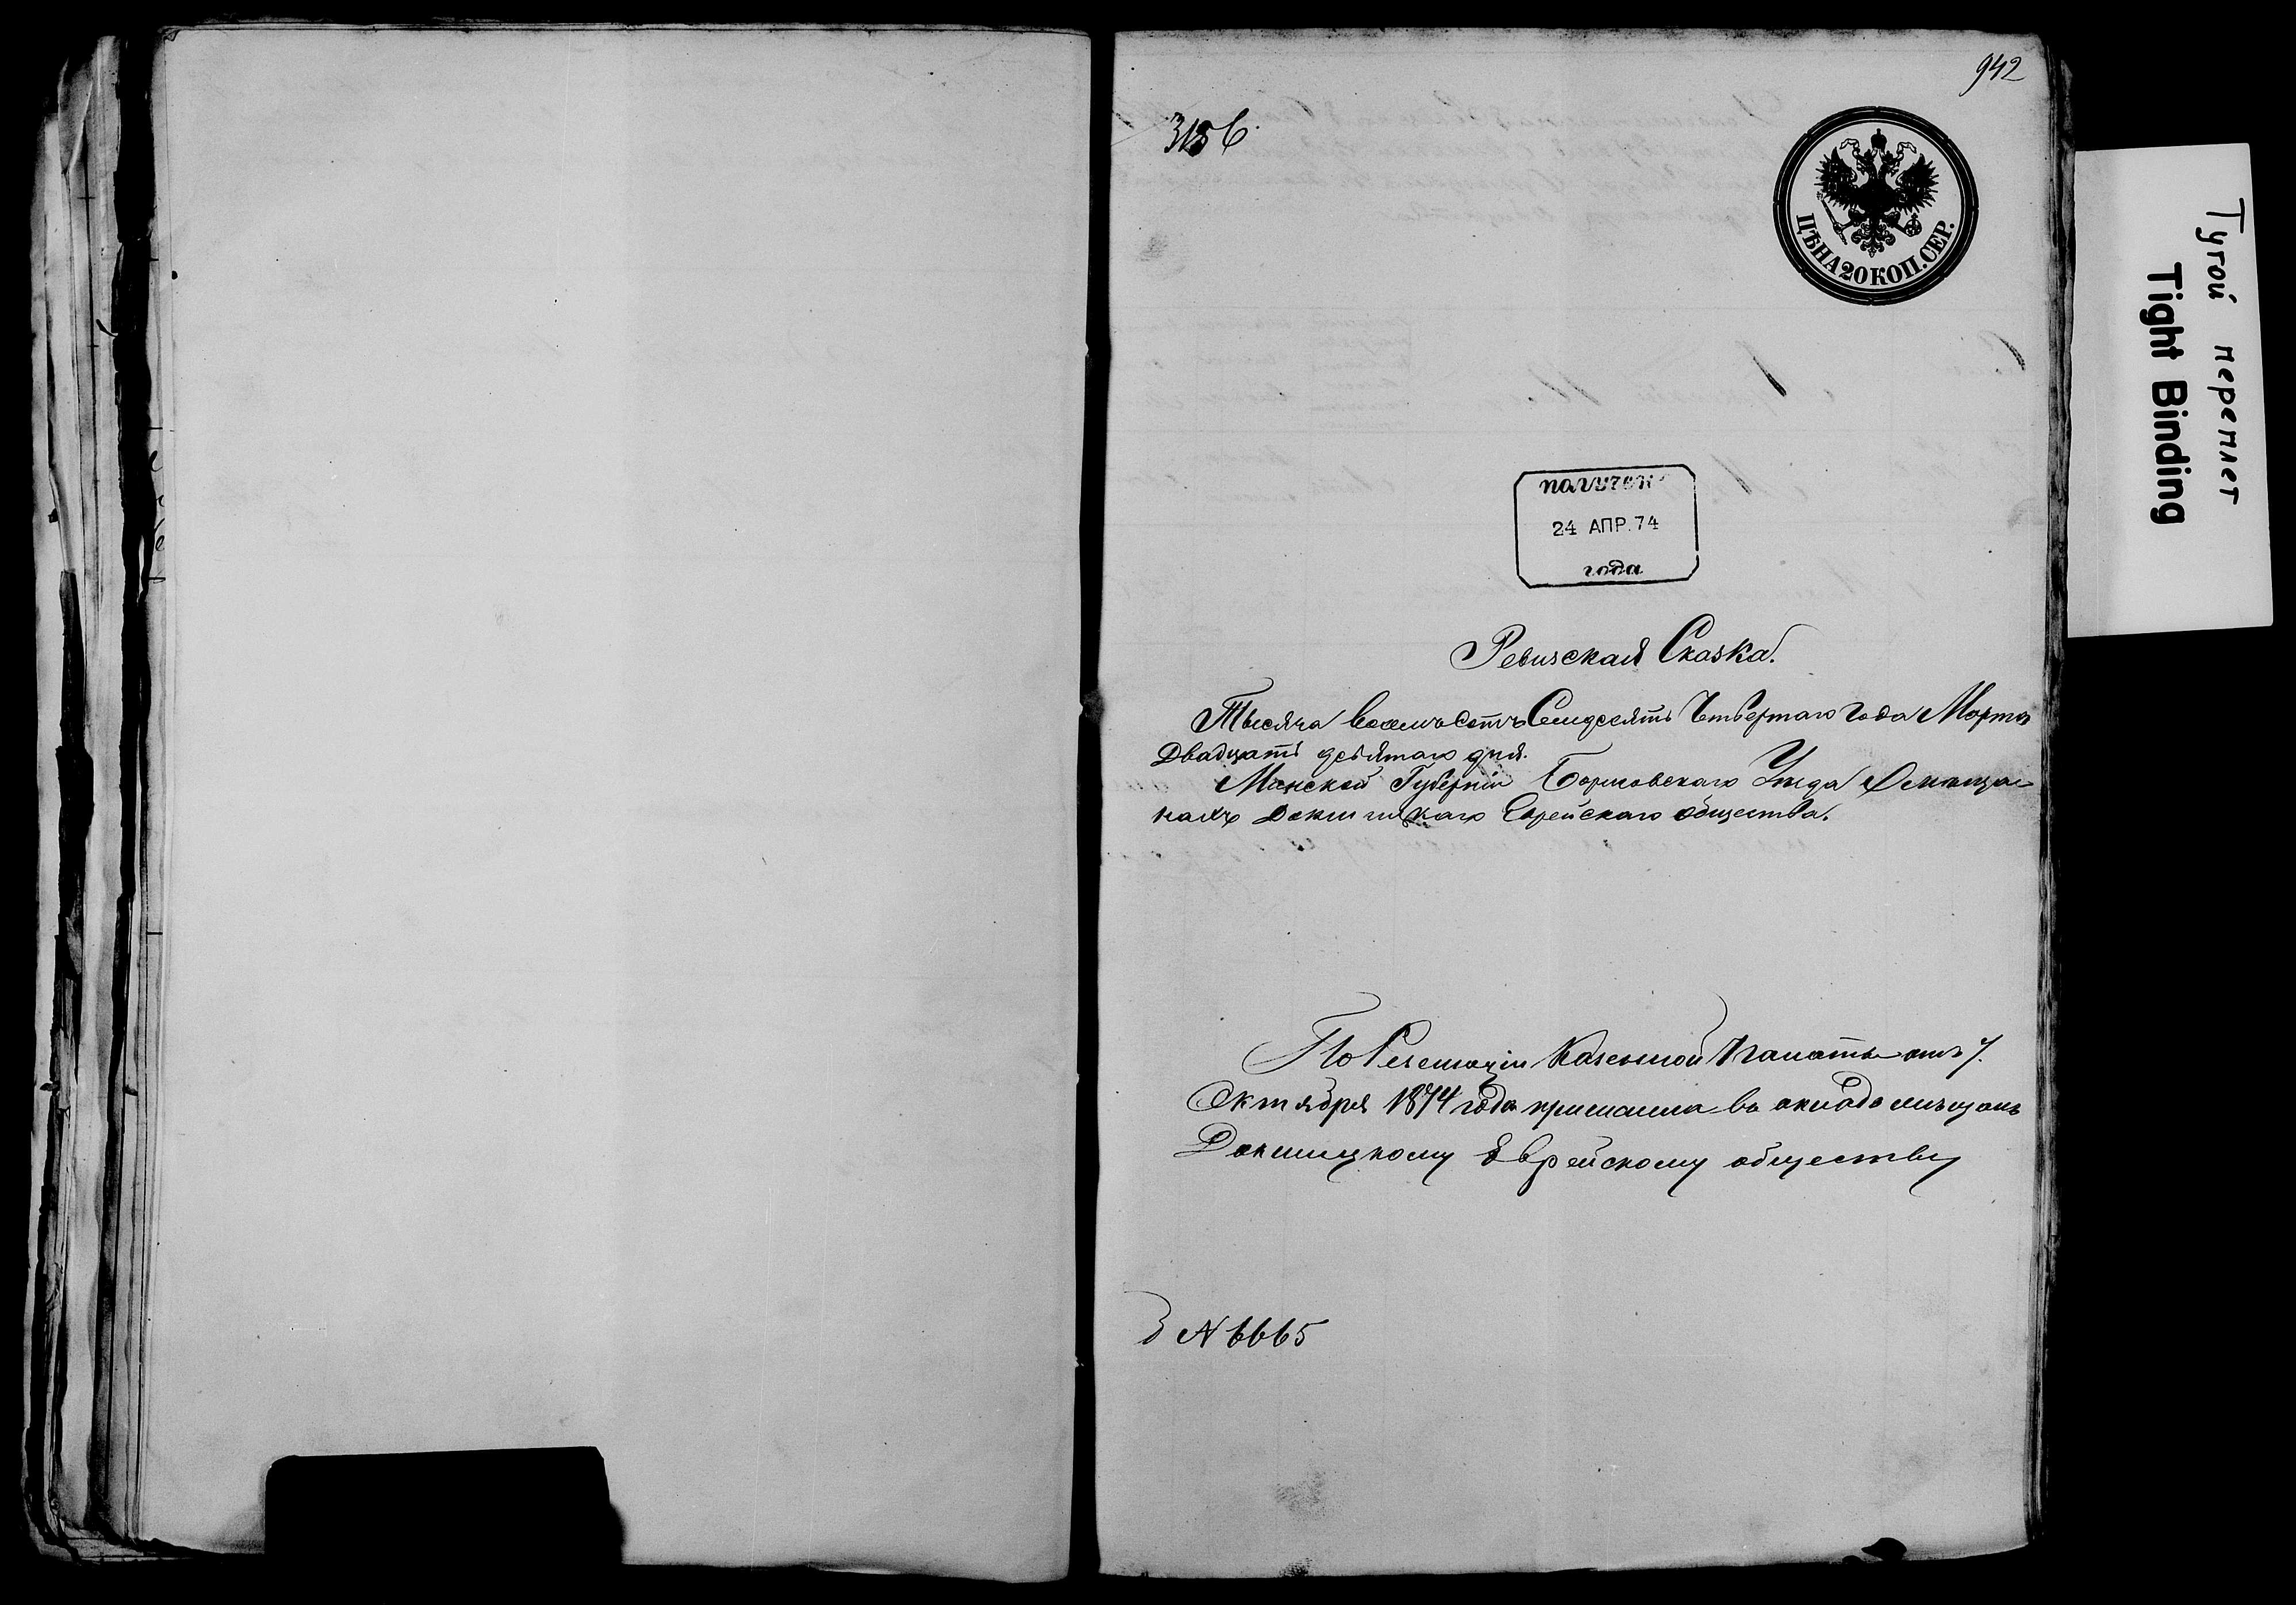 942
3156
ЦѢНА 20 КОП. СЕР.
получен
24 АПР. 74
года
Ревизская Сказка.
Тысяча восемьсотъ Семдесять Четвертаго года Марта
Двадцать девятаго дня.
Минской Губернiи Борисовскаго Уѣзда О мѣща-
нахъ Докшицкаго Еврейскаго общества.
По Резолюцiи Казенной Палаты отъ 7.
Октября 1874 года причислена въ окладъ мѣщанъ
Докшицкому Еврейскому обществу
N 6665
Тугой переплет
Tight Binding